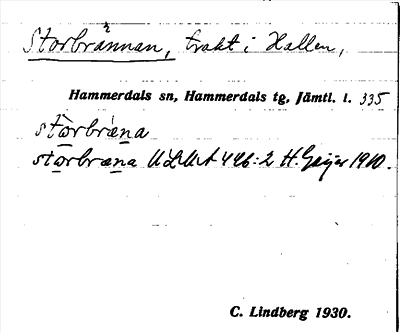 Storbrännan, trakt i Hallen,
Hammerdals sn, Hammerdals tg, Jämtl. l. 335
stòrbrǽna
storbræna ULMA 446:2 H. Geijer 1910.
C. Lindberg 1930.